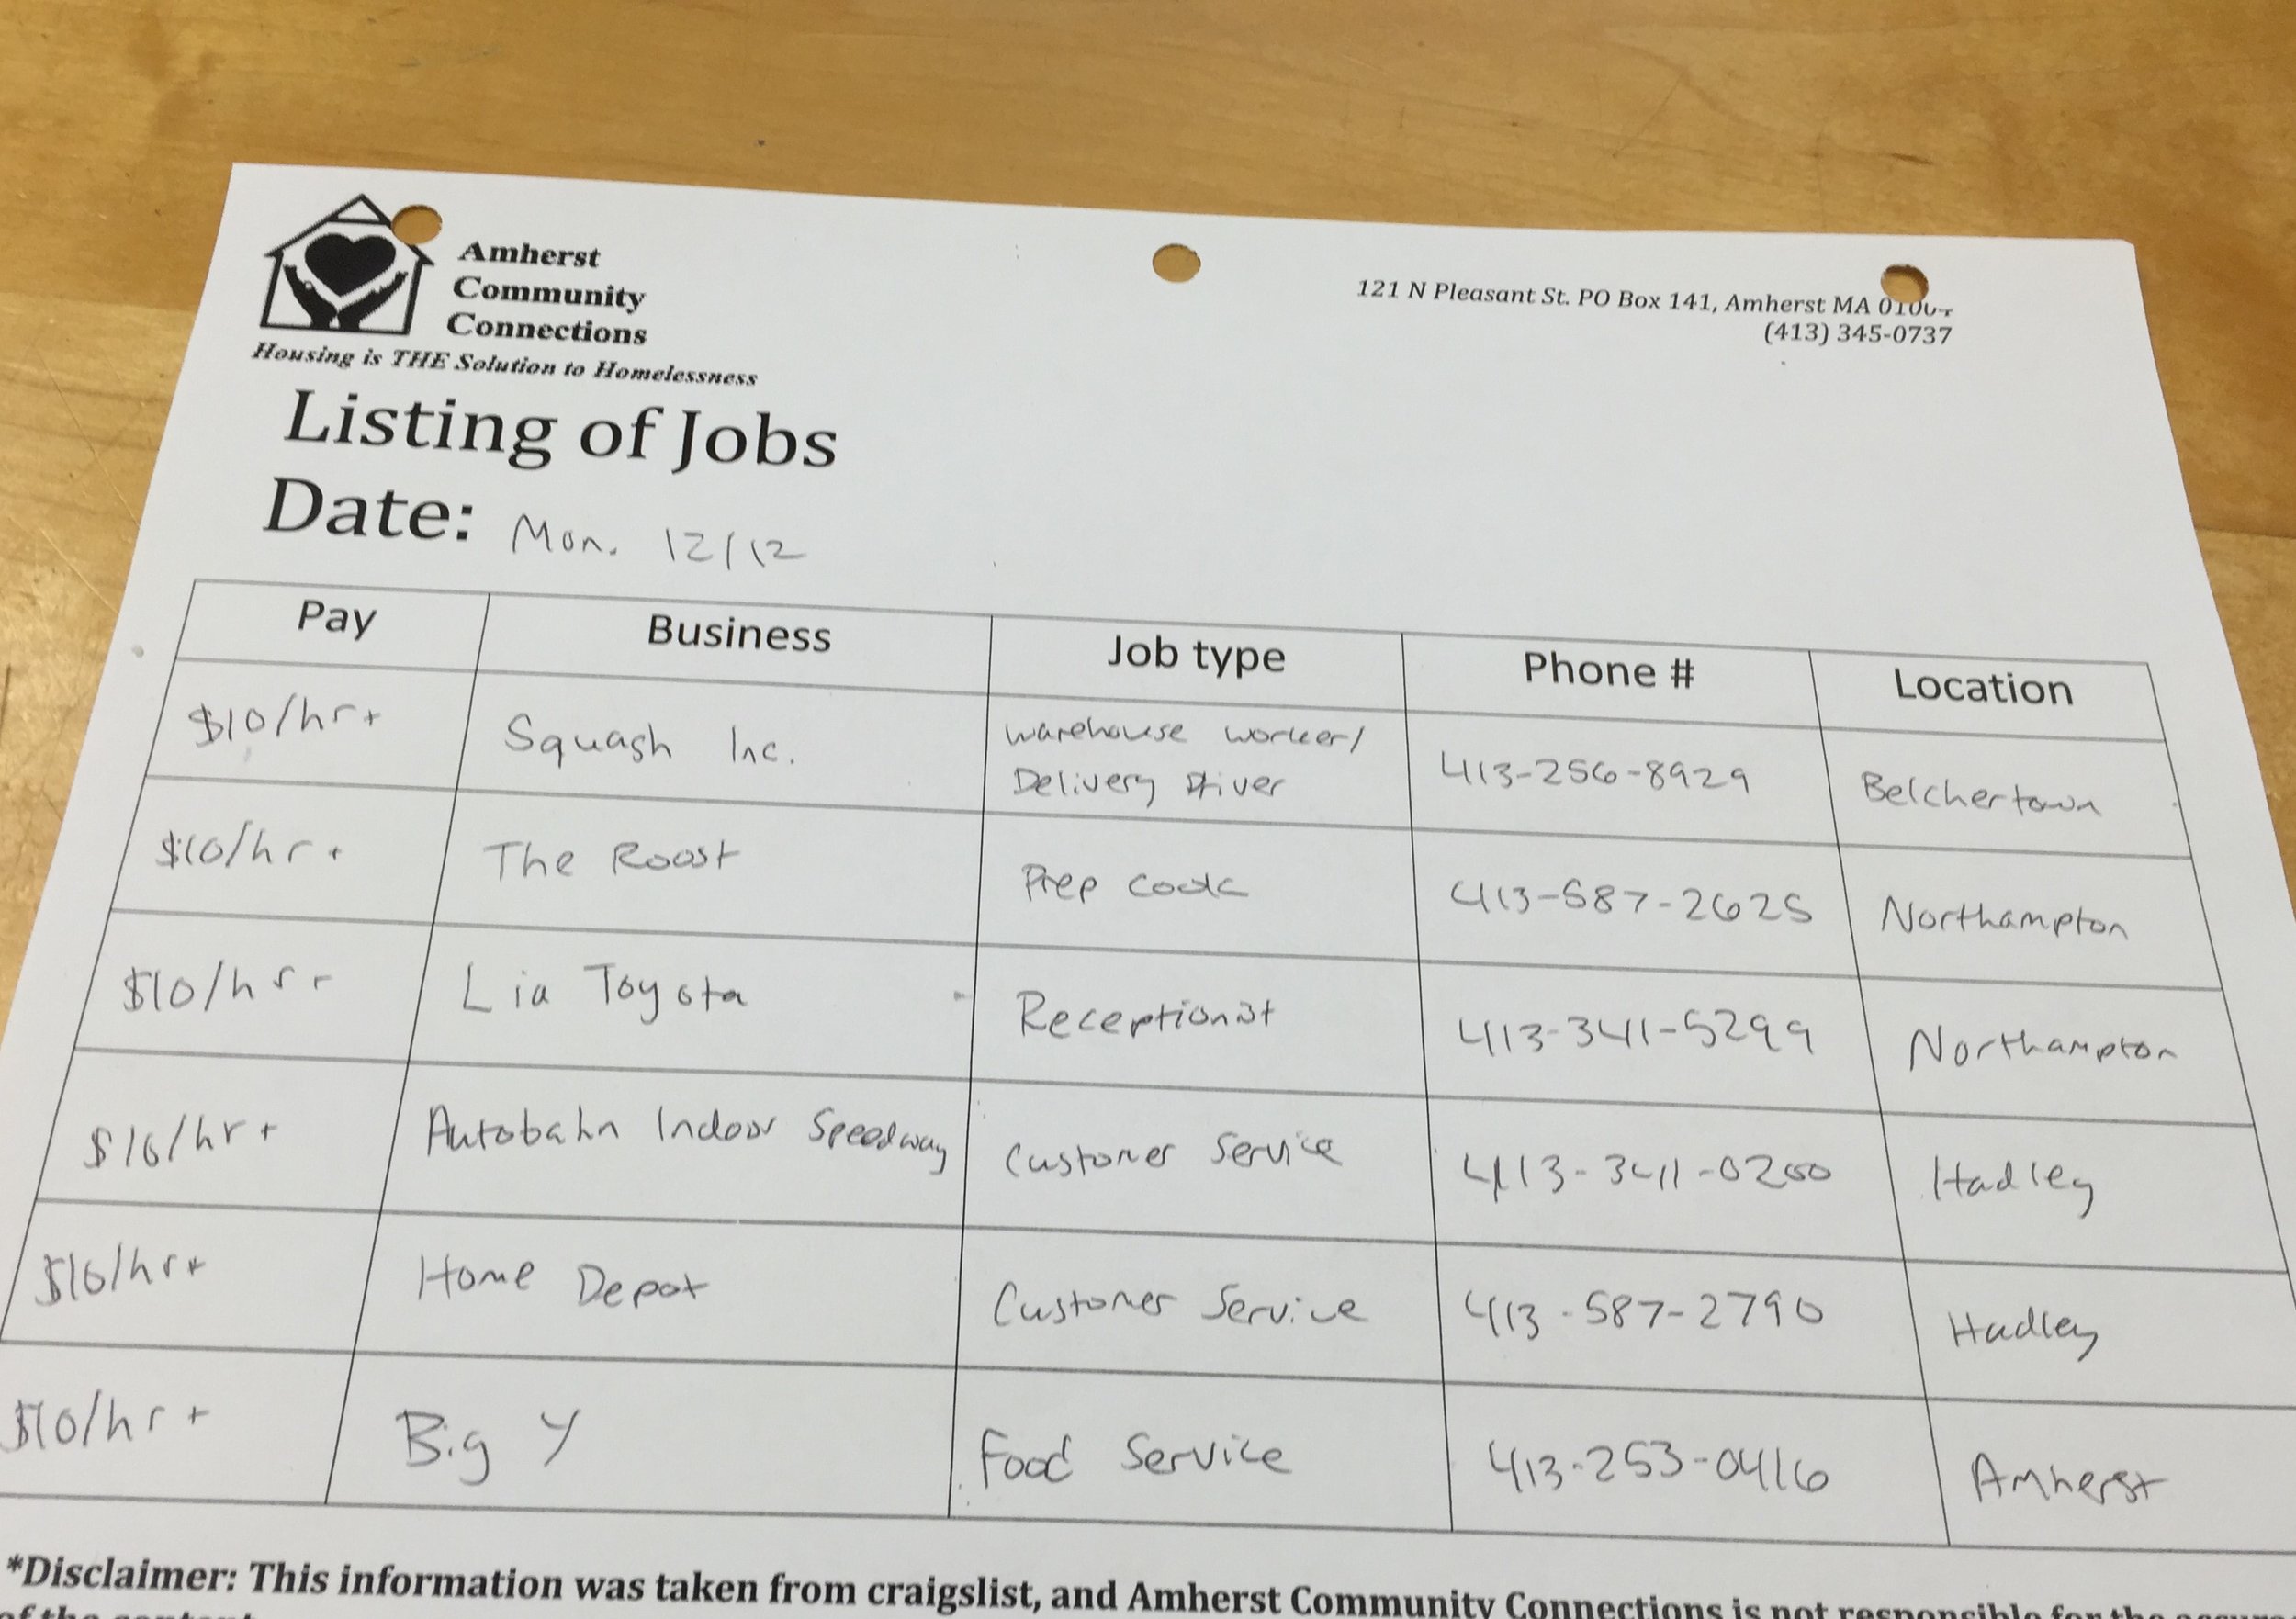 Amherst
Community
Connections
Housing is THE Solution to Homelessness
121 N Pleasant St. PO Box 141, Amherst MA
(413) 345-0737
Listing of Jobs
Date: Mon. 12/12
Pay Business Job type Phone # Location
$10/hr+ Squash Inc. Warehouse worker/ Delivery Driver 413-256-8929 Belchertown
$10/hr+ The Roost Prep cook 413-587-2625 Northampton
$10/hr+ Lia Toyota Receptionist 413-341-5299 Northampton
$10/hr+ Autobahn Indoor Speedway Customer Service 413-341-0200 Hadley
$10/hr+ Home Depot Customer Service 413-587-2790 Hadley
$10/hr+ Big Y Food Service 413-253-0416 Amherst
*Disclaimer: This information was taken from craigslist, and Amherst Community Connections is not responsible for the
of the content